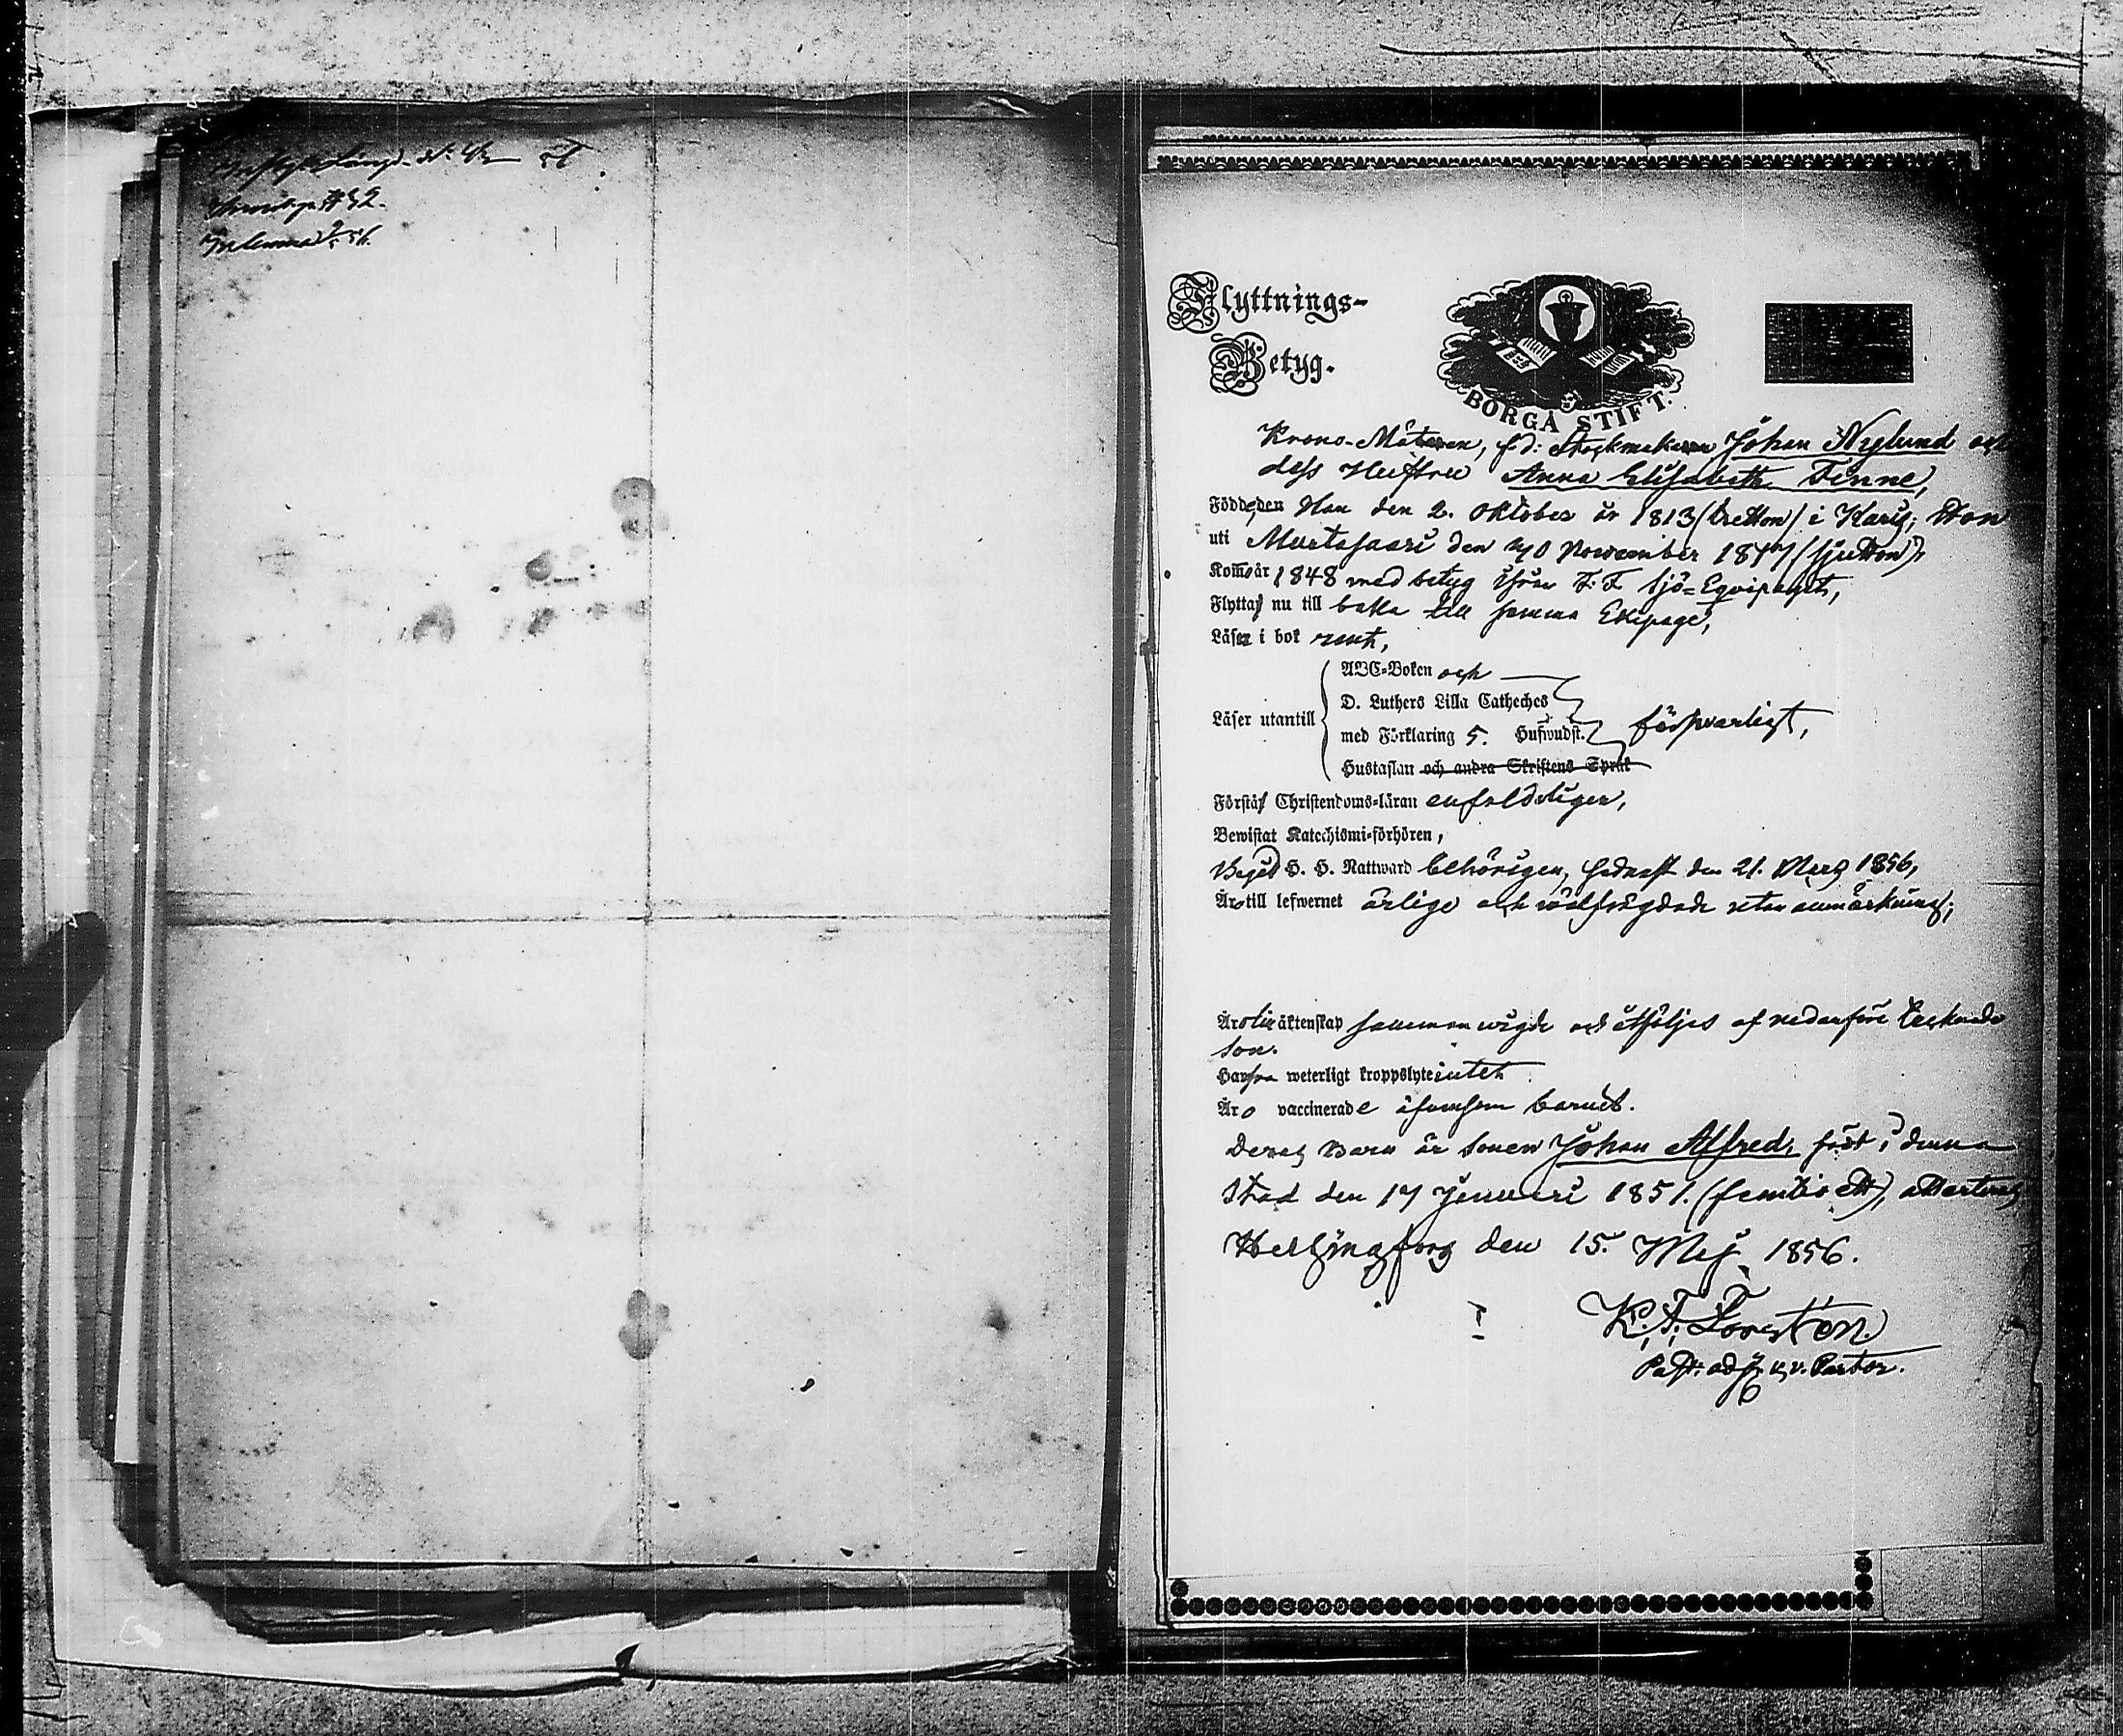 Flyttnings-
Betyg.
BORGÅ STIFT.
Krono-Mätaren, f.d: Stockmakaren Johan Nylund och
dess Hustru Anna Elisabeth Finne,
Födde, den Han den 2. Oktober år 1813 (tretton) i Karis, Hon
uti den November 1817 (sjutton);
Kom år 1848 med betyg ifrån F. F. Sjö-Eqvipaget,
Flytta nu till baka till samma Ekipage,
Läser i bok rent,
ABC-Boken och
D. Luthers Lilla Catheches
Läser utantill
med Förklaring 5. Hufwudst. förswarligt,
Hustaflan och andra Skriftens Språk
Förstå Christendoms-läran enfaldeligen,
Bewistat Katechismi-förhören,
Begått H. H. Nattward behörigen, sednast den 21. Mars 1856,
Äro till lefwernet ärlige och wälfrägdade utan anmärkning;
Äro till äktenskap samman wigde och åtföljes af nedanföre tecknade
son.
Hafwa weterligt kroppslyte intet
Äro vaccinerade äfwensom barnet.
Deras Barn är Sonen Johan Alfred, född i denna
Stad den 17 Januari 1851. (femtio ett), attesteras
Helsingfors den 15. Maj 1856.
K. F. Forstén.
Past: adj. v. Pastor.